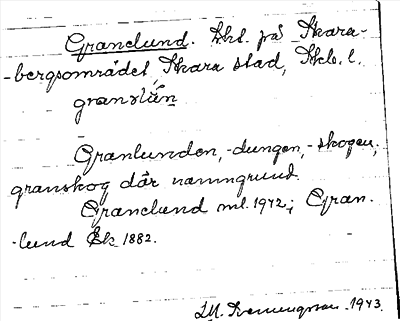 Granelund. Lht. på Skara-
-bergsområdet, Skara stad, Skb. l.
granɜlún̄
Granlunden, -dungen, -skogen;
granskog där namngrund.
Granelund ml. 1942; Gran-
-lund Ek 1882.
1943.